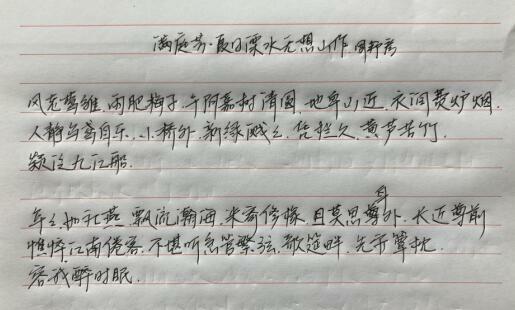 满庭芳·夏日溧水无想山作 周邦彦
风老莺雏,雨肥梅子,午阴嘉树清圆,地卑山近,衣润费炉烟.
人静乌鸢自乐,小桥外,新绿溅之,凭栏久,黄芦苦竹,
疑泛九江船.
年之,如社燕,飘流瀚海,来寄修椽,且莫思身外,长近尊前
憔悴江南倦客,不堪听急管繁弦,歌筵畔,先安簟枕,
容我醉时眠.